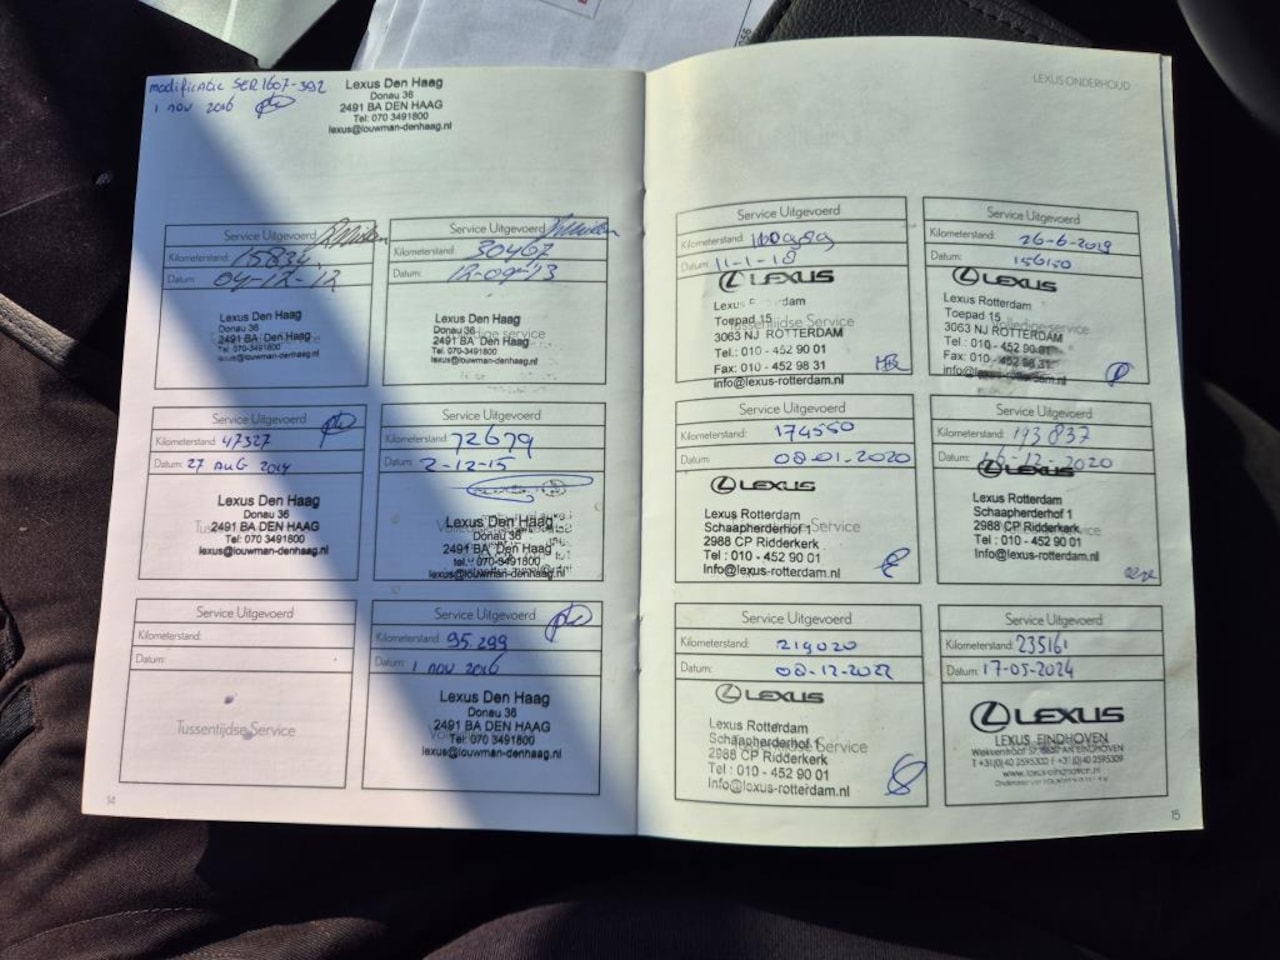 modificatie SER1607-392
1 nov 2016
Lexus Den Haag
Donau 36
2491 BA DEN HAAG
Tel: 070 3491800
lexus@louwman-denhaag.nl
Service Uitgevoerd
Kilometerstand: 15834
Datum: 04-12-12
Lexus Den Haag
Donau 36
2491 BA Den Haag
Tel. 070-3491800
lexus@louwman-denhaag.nl
Service Uitgevoerd
Kilometerstand: 30467
Datum: 12-09-13
Lexus Den Haag
Donau 36
2491 BA Den Haag
Tel. 070-3491800
lexus@louwman-denhaag.nl
Service Uitgevoerd
Kilometerstand: 47327
Datum: 27 AUG 2014
Lexus Den Haag
Donau 36
2491 BA DEN HAAG
Tel: 070 3491800
lexus@louwman-denhaag.nl
Service Uitgevoerd
Kilometerstand: 72679
Datum: 2-12-15
Lexus Den Haag
Donau 36
2491 BA Den Haag
tel. 070-3491800
lexus@louwman-denhaag.nl
Service Uitgevoerd
Kilometerstand:
Datum:
Tussentijdse Service
Service Uitgevoerd
Kilometerstand: 95.299
Datum: 1 nov 2016
Lexus Den Haag
Donau 36
2491 BA DEN HAAG
Tel: 070 3491800
lexus@louwman-denhaag.nl
14
LEXUS ONDERHOUD
Service Uitgevoerd
Kilometerstand:
Datum: 11-1-18
LEXUS
Lexus
Toepad 15
Tussentijdse Service
3063 NJ ROTTERDAM
Tel.: 010 - 452 90 01
Fax: 010 - 452 98 31
info@lexus-rotterdam.nl
Service Uitgevoerd
Kilometerstand: 26-6-2019
Datum: 156150
LEXUS
Lexus Rotterdam
Toepad 15
Volledige service
3063 NJ ROTTERDAM
Tel.: 010 - 452 90 01
Fax: 010 - 452 98 31
info@lexus-rotterdam.nl
Service Uitgevoerd
Kilometerstand: 174550
Datum: 08-01-2020
LEXUS
Lexus Rotterdam
Schaapherderhof 1
Service
2988 CP Ridderkerk
Tel : 010 - 452 90 01
Info@lexus-rotterdam.nl
Service Uitgevoerd
Kilometerstand: 193837
Datum: 16-12-2020
LEXUS
Lexus Rotterdam
Schaapherderhof 1
2988 CP Ridderkerk
Tel : 010 - 452 90 01
Info@lexus-rotterdam.nl
Service Uitgevoerd
Kilometerstand: 219020
Datum: 08-12-2022
LEXUS
Lexus Rotterdam
Schaapherderhof 1
Service
2988 CP Ridderkerk
Tel : 010 - 452 90 01
Info@lexus-rotterdam.nl
Service Uitgevoerd
Kilometerstand: 235161
Datum: 17-05-2024
LEXUS
LEXUS EINDHOVEN
T +31(0)40 2595300 F +31(0)40 2595309
www.lexus-eindhoven.nl
15